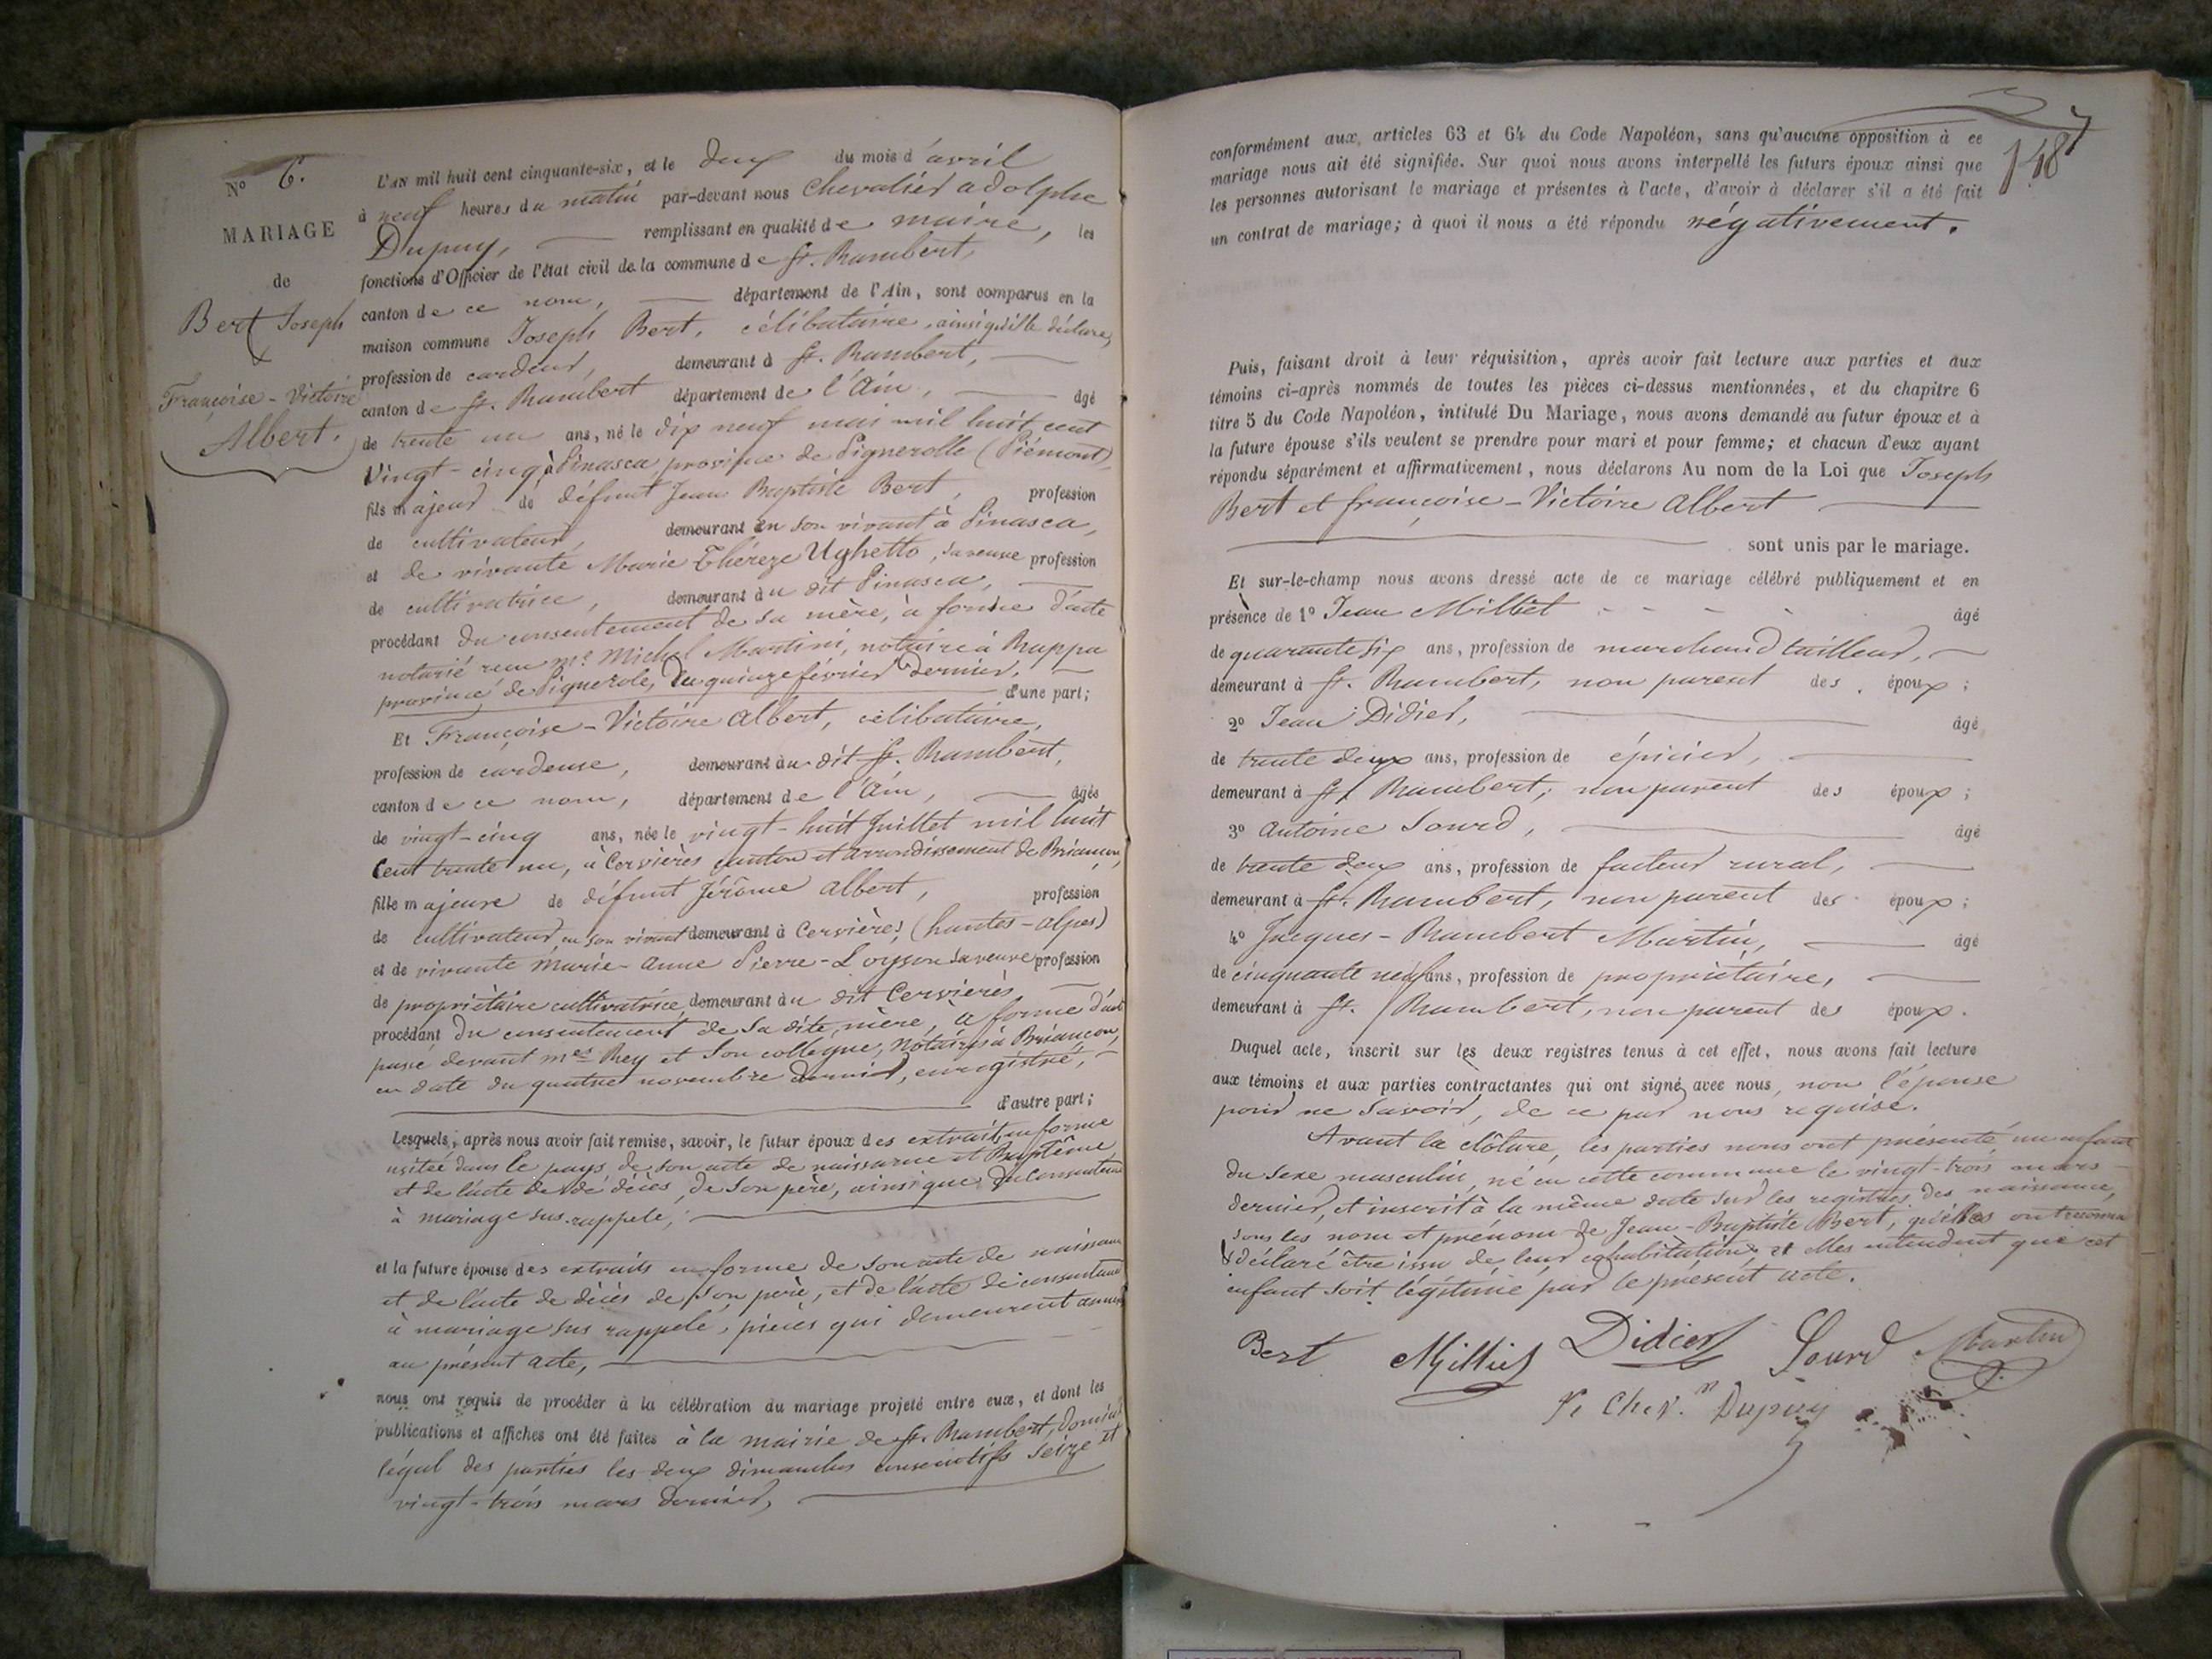 N° 6.
MARIAGE
de
Bert Joseph
&
Françoise-Victoire
Albert.
L'AN mil huit cent cinquante-six, et le deux du mois d'avril
à neuf heures du matin par-devant nous Chevalier adolphe
Dupuy, remplissant en qualité de maire, les
fonctions d'Officier de l'état civil de la commune de St. Rambert,
canton de ce nom, département de l'Ain, sont comparus en la
maison commune Joseph Bert, célibataire, ainsi qu'il le déclare,
profession de cardeur, demeurant à St. Rambert,
canton de St. Rambert département de l'Ain, âgé
de trente un ans, né le dix neuf mai mil huit cent
vingt-cinq à Pinasca province de Pignerolle (Piémont),
fils majeur de défunt Jean Baptiste Bert, profession
de cultivateur, demeurant en son vivant à Pinasca,
et de vivante Marie Thérèze Ughetto, sa veuve profession
de cultivatrice, demeurant au dit Pinasca,
procédant du consentement de sa mère, à forme d'acte
notarié reçu me Michel Martini, notaire à
province de Pignerole, du quinze février dernier, d'une part;
Et Françoise-Victoire Albert, célibataire,
profession de cardeuse, demeurant au dit St. Rambert,
canton de ce nom, département de l'Ain, âgée
de vingt-cinq ans, née le vingt-huit Juillet mil huit
Cent trente un, à Cervières canton et arrondissement de Briançon,
fille majeure de défunt Jérôme Albert, profession
de cultivateur en son vivant demeurant à Cervières, (hautes-alpes)
et de vivante Marie-Anne Pierre-Loyson sa veuve profession
de propriétaire cultivatrice, demeurant au dit Cervières
procédant du consentement de sa dite mère, à forme d'acte
passé devant mes Rey et son collegue, Notaires à Briançon,
en date du quatre novembre dernier, enregistré,
d'autre part;
Lesquels, après nous avoir fait remise, savoir, le futur époux des extraits en forme
usitée dans le pays de son acte de naissance et Baptême
et de l'acte de décès, de son père, ainsi que du consentement
à mariage sus-rappelé,
et la future épouse des extraits en forme de son acte de naissance
et de l'acte de décès de son père, et de l'acte de consentement
à mariage sus rappelé, pièces qui demeurent annexées
au présent acte,
nous ont requis de procéder à la célébration du mariage projeté entre eux, et dont les
publications et affiches ont été faites à la mairie de St. Rambert, domicile
légal des parties les deux dimanches consécutifs seize et
vingt-trois mars dernier,
148
conformément aux articles 63 et 64 du Code Napoléon, sans qu'aucune opposition à ce
mariage nous ait été signifiée. Sur quoi nous avons interpellé les futurs époux ainsi que
les personnes autorisant le mariage et présentes à l'acte, d'avoir à déclarer s'il a été fait
un contrat de mariage; à quoi il nous a été répondu négativement.
Puis, faisant droit à leur réquisition, après avoir fait lecture aux parties et aux
témoins ci-après nommés de toutes les pièces ci-dessus mentionnées, et du chapitre 6
titre 5 du Code Napoléon, intitulé Du Mariage, nous avons demandé au futur époux et à
la future épouse s'ils veulent se prendre pour mari et pour femme; et chacun d'eux ayant
répondu séparément et affirmativement, nous déclarons Au nom de la Loi que Joseph
Bert et françoise-Victoire Albert
sont unis par le mariage.
Et sur-le-champ nous avons dressé acte de ce mariage célébré publiquement et en
présence de 1° Jean Milliet âgé
de quarante six ans, profession de marchand tailleur,
demeurant à St. Rambert, non parent des époux;
2° Jean Didier, âgé
de trente deux ans, profession de épicier,
demeurant à St. Rambert, non parent des époux;
3° Antoine Sourd, âgé
de trente deux ans, profession de facteur rural,
demeurant à St. Rambert, non parent des époux;
4° Jacques-Rambert Martin, âgé
de cinquante neuf ans, profession de propriétaire,
demeurant à St. Rambert, non parent des époux.
Duquel acte, inscrit sur les deux registres tenus à cet effet, nous avons fait lecture
aux témoins et aux parties contractantes qui ont signé avec nous, non l'épouse
pour ne savoir, de ce par nous requise.
Avant la clôture, les parties nous ont présenté un enfant
du sexe masculin, né en cette commune le vingt-trois mars
dernier, et inscrit à la même date sur les registres des naissances,
sous les nom et prénom de Jean-Baptiste Bert, qu'elles ont reconnu
& déclaré être issu de leur cohabitation, et elles entendent que cet
enfant soit légitimé par le présent acte.
Bert Milliet Didier Sourd Martin
Chev. Dupuy